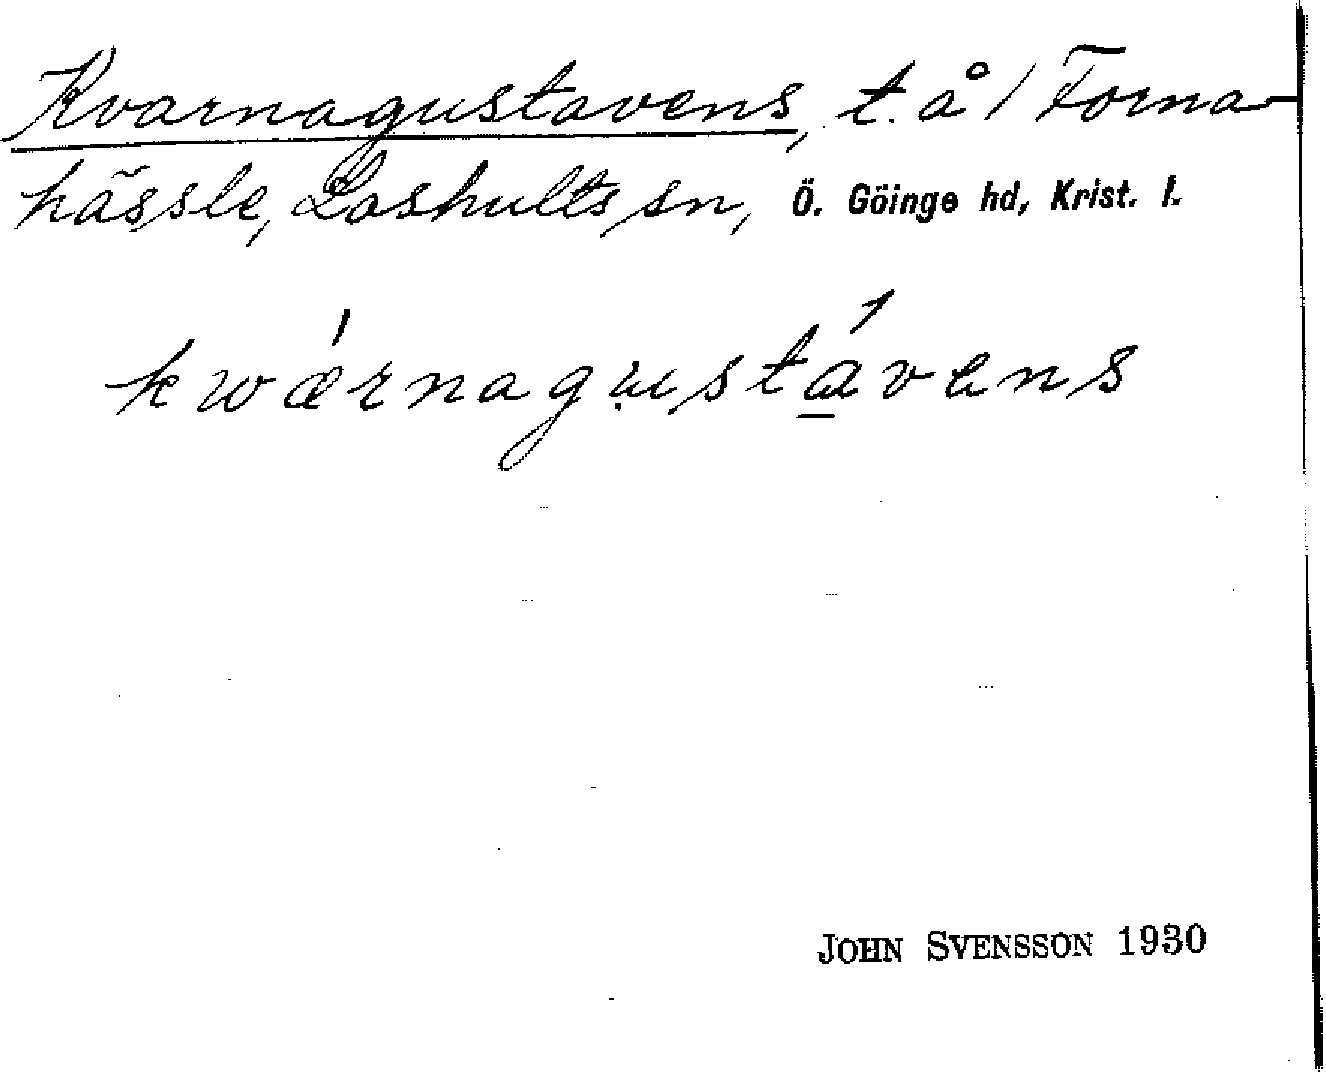 Kvarnagustavens, t. å / Forna-
hässle, Loshults sn, Ö. Göinge hd, Krist. l.
kwǽrnagụstá̲vens
JOHN SVENSSON 1930